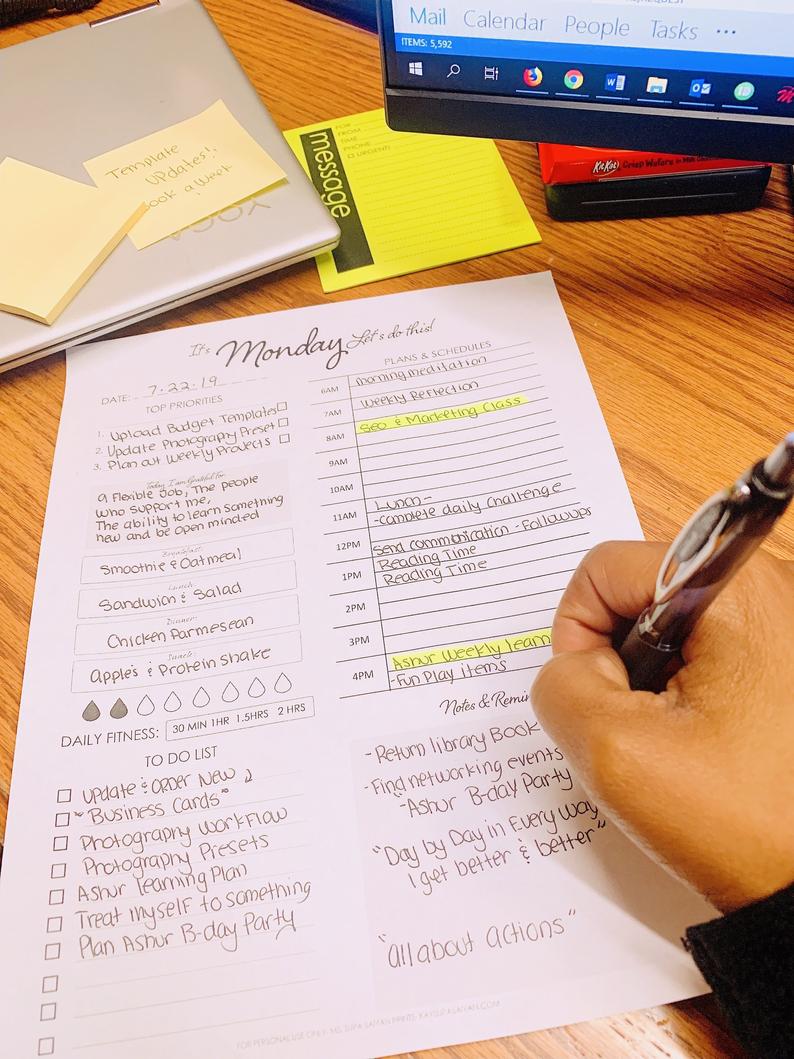 Mail Calendar People Tasks ...
ITEMS: 5,592
Template
UPdates!!
Book a Week
YOGA
message
FOR
FROM
TIME
PHONE
URGENT!
KitKat Crisp Wafers in Milk
It's Monday Let's do this!
DATE: 7.22.19
TOP PRIORITIES
1. Upload Budget Templates
2. Update Photography Preset
3. Plan out Weekly Projects
Today I am Grateful For
a Flexible Job, The people
who support me,
The ability to learn something
new and be open minded
Breakfast:
Smoothie & Oatmeal
Lunch:
Sandwich & Salad
Dinner:
Chicken Parmesean
Snack:
Apples & Protein Shake
DAILY FITNESS: 30 MIN 1HR 1.5HRS 2 HRS
TO DO LIST
Update & Order New
"Business Cards"
Photography Workflow
Photography Presets
Ashur learning Plan
Treat myself to something
Plan Ashur B-day Party
PLANS & SCHEDULES
6AM morning meditation
7AM Weekly Reflection
8AM Seo & Marketing Class
9AM
10AM
11AM Lunch -
-complete daily Challenge
12PM Send communication - Followups
1PM Reading Time
Reading Time
2PM
3PM
4PM Ashur Weekly learn
-Fun Play items
Notes & Remin
- Return library Book
- Find networking events
- Ashur B-day Party
"Day by Day in Every way
I get better & better"
"all about actions"
FOR PERSONAL USE ONLY: